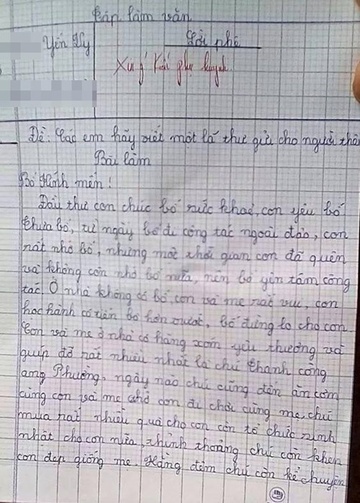 Tập làm văn
Yến Vy
Lời phê
Xin ý kiến phụ huynh
Đề: Các em hãy viết một lá thư gửi cho người thân
Bài làm
Bố kính mến!
Đầu thư con chúc bố sức khoẻ, con yêu bố
Thưa bố, từ ngày bố đi công tác ngoài đảo, con
rất nhớ bố, nhưng một thời gian con đã quên
và không còn nhớ bố nữa, nên bố yên tâm công
tác. Ở nhà không có bố, con và mẹ rất vui, con
học hành có tiến bộ hơn trước, bố đừng lo cho con
Con và mẹ ở nhà có hàng xóm yêu thương và
giúp đỡ rất nhiều nhất là chú Thanh công
ang Phường, ngày nào chú cũng đến ăn cơm
cùng con và mẹ chở con đi chơi cùng mẹ, chú
mua rất nhiều quà cho con còn tổ chức sinh
nhật cho con nữa, thỉnh thoảng chú còn khen
con đẹp giống mẹ. Hằng đêm chú còn kể chuyện